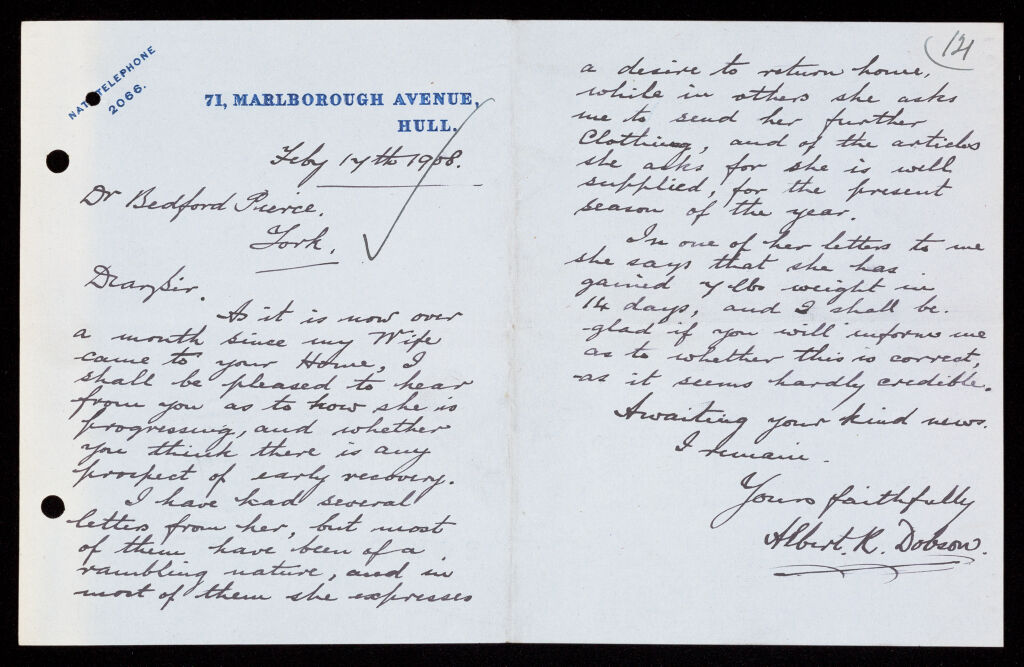 NAT. TELEPHONE
2066.
71, MARLBOROUGH AVENUE,
HULL.
Feby 17th 1908.
Dr Bedford Pierce.
York.
Dear Sir.
As it is now over
a month since my Wife
came to your Home, I
shall be pleased to hear
from you as to how she is
progressing, and whether
you think there is any
prospect of early recovery.
I have had several
letters from her, but most
of them have been of a
rambling nature, and in
most of them she expresses
121
a desire to return home,
while in others she asks
me to send her further
Clothing, and of the articles
she asks for she is well
supplied, for the present
season of the year.
In one of her letters to me
she says that she has
gained 7 lbs weight in
14 days, and I shall be
glad if you will inform me
as to whether this is correct,
as it seems hardly credible.
Awaiting your kind news.
I remain.
Yours faithfully
Albert. K. Dobson.